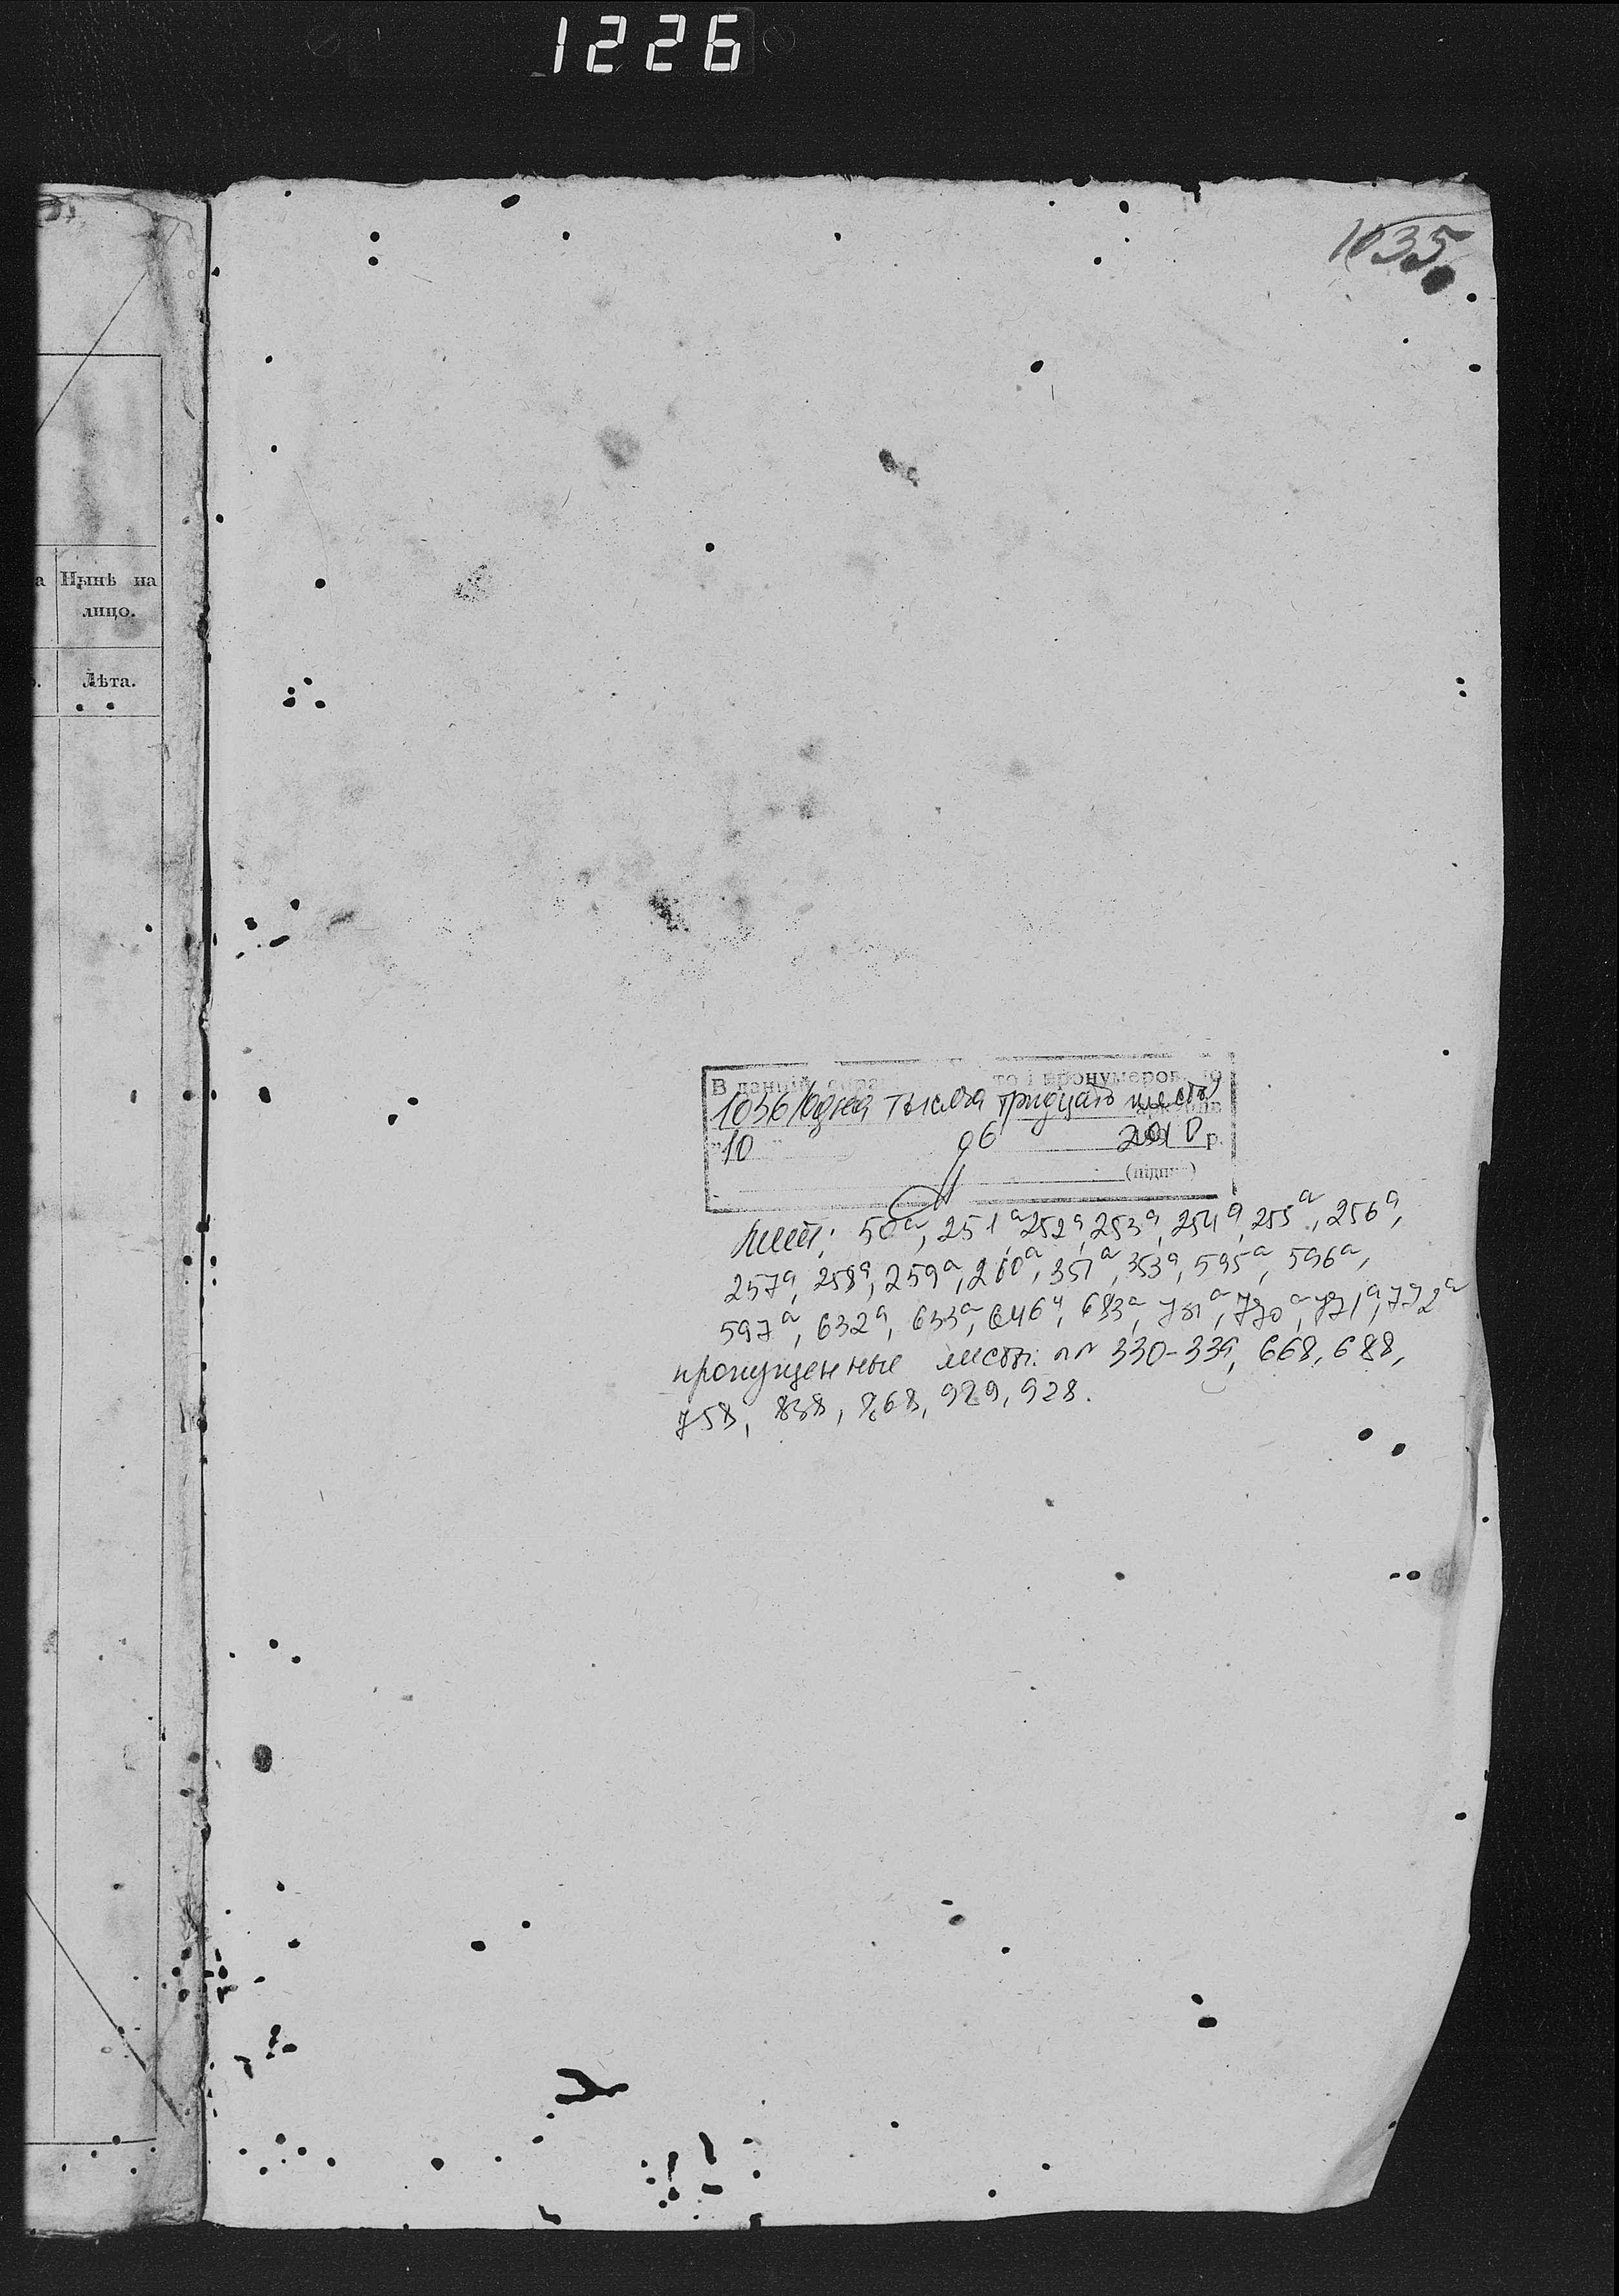 1226
1035
Нынѣ на
лицо.
Лѣта.
В даній
то і пронумеров
1036 (одна тысяча тридцать шесть)
аркушів
"10" 06 2010 р.
(підпис)
50а, 251а, 252а, 253а, 254а, 255а, 256а,
257а, 258а, 259а, 260а, 351а, 353а, 595а, 596а,
597а, 632а, 633а, 646а, 683а, 770а, 771а, 772а
пропущенные листы: 330-339, 668, 688,
758, 838, 868, 929, 928.